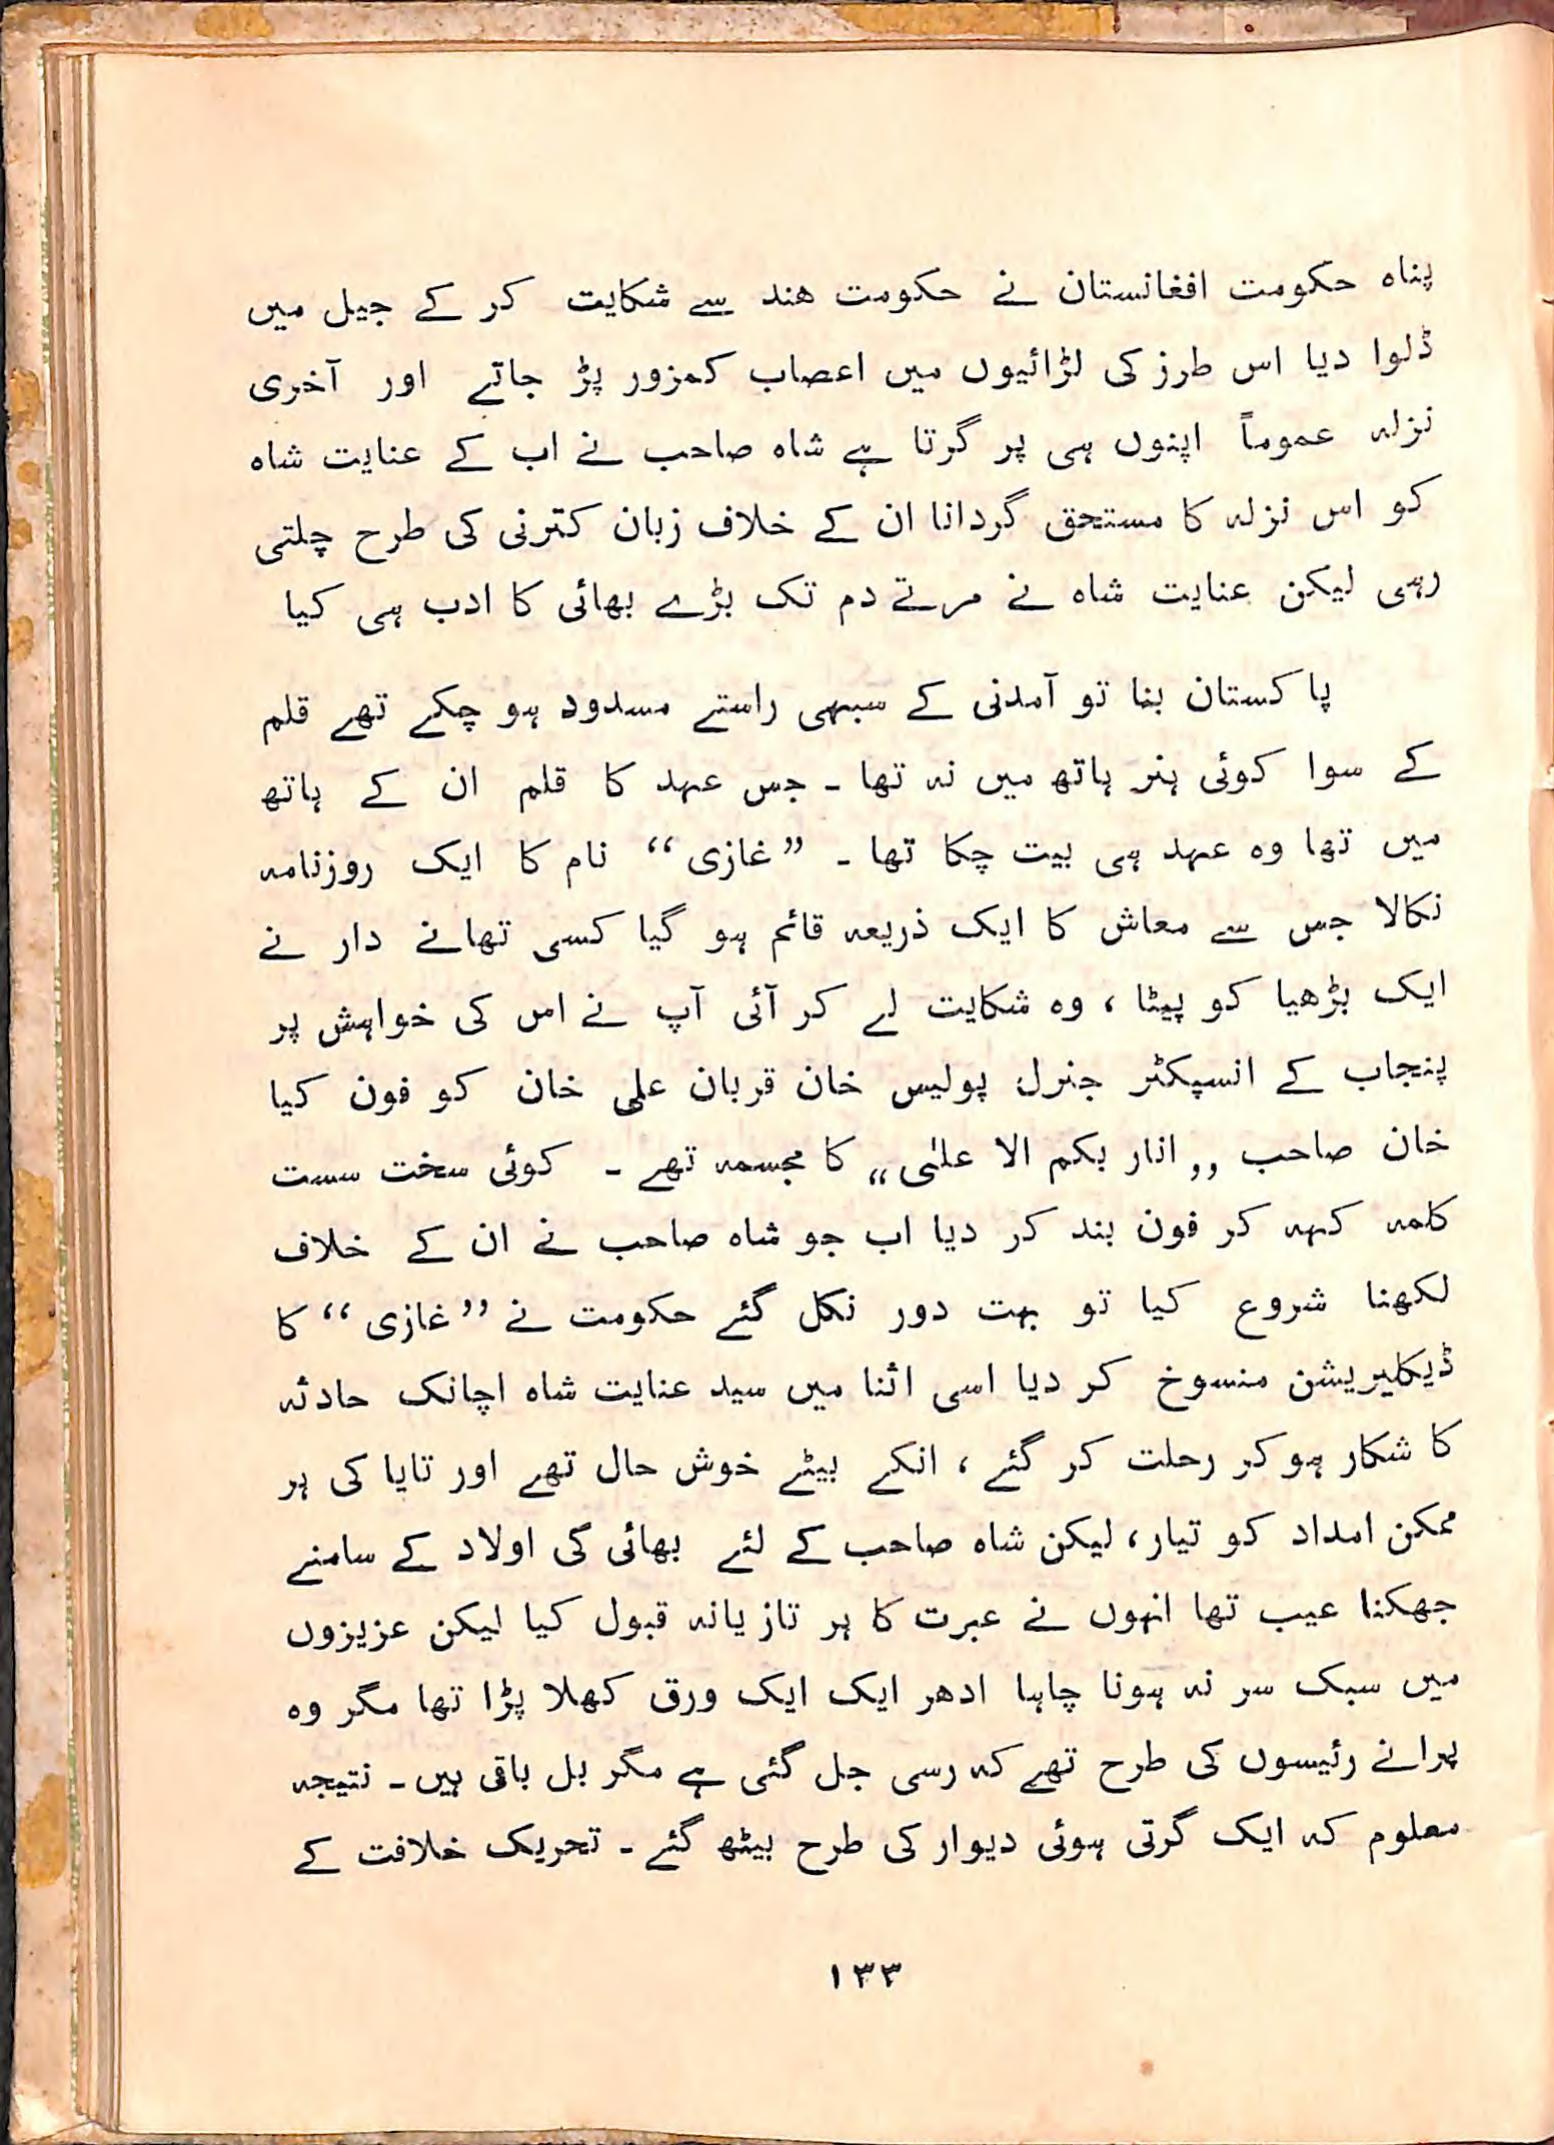 پناہ حکومت افغانستان نے حکومت ھند سے شکایت کر کے جیل میں
ڈلوا دیا اس طرز کی لڑائیوں میں اعصاب کمزور پڑ جاتے اور آخری
نزلہ عموماً اپنوں ہی پر گرتا ہے شاہ صاحب نے اب کے عنایت شاہ
کو اس نزلہ کا مستحق گردانا ان کے خلاف زبان کترنی کی طرح چلتی
رہی لیکن عنایت شاہ نے مرتے دم تک بڑے بھائی کا ادب ہی کیا
پاکستان بنا تو آمدنی کے سبھی راستے مسدود ہو چکے تھے قلم
کے سوا کوئی ہنر ہاتھ میں نہ تھا ۔ جس عہد کا قلم ان کے ہاتھ
میں تھا وہ عہد ہی بیت چکا تھا ۔ ”غازی“ نام کا ایک روزنامہ
نکالا جس سے معاش کا ایک ذریعہ قائم ہو گیا کسی تھانے دار نے
ایک بڑھیا کو پیٹا ، وہ شکایت لے کر آئی آپ نے اس کی خواہش پر
پنجاب کے انسپکٹر جنرل پولیس خان قربان علی خان کو فون کیا
خان صاحب ,, انار بکم الا علیٰ ،، کا مجسمہ تھے ۔ کوئی سخت سست
کلمہ کہہ کر فون بند کر دیا اب جو شاہ صاحب نے ان کے خلاف
لکھنا شروع کیا تو بہت دور نکل گئے حکومت نے ”غازی“ کا
ڈیکلیریشن منسوخ کر دیا اسی اثنا میں سید عنایت شاہ اچانک حادثہ
کا شکار ہو کر رحلت کر گئے ، انکے بیٹے خوش حال تھے اور تایا کی ہر
ممکن امداد کو تیار، لیکن شاہ صاحب کے لئے بھائی کی اولاد کے سامنے
جھکنا عیب تھا انہوں نے عبرت کا ہر تازیانہ قبول کیا لیکن عزیزوں
میں سبک سر نہ ہونا چاہا ادھر ایک ایک ورق کھلا پڑا تھا مگر وہ
پرانے رئیسوں کی طرح تھے کہ رسی جل گئی ہے مگر بل باقی ہیں ۔ نتیجہ
معلوم کہ ایک گرتی ہوئی دیوار کی طرح بیٹھ گئے ۔ تحریک خلافت کے
۱۳۳